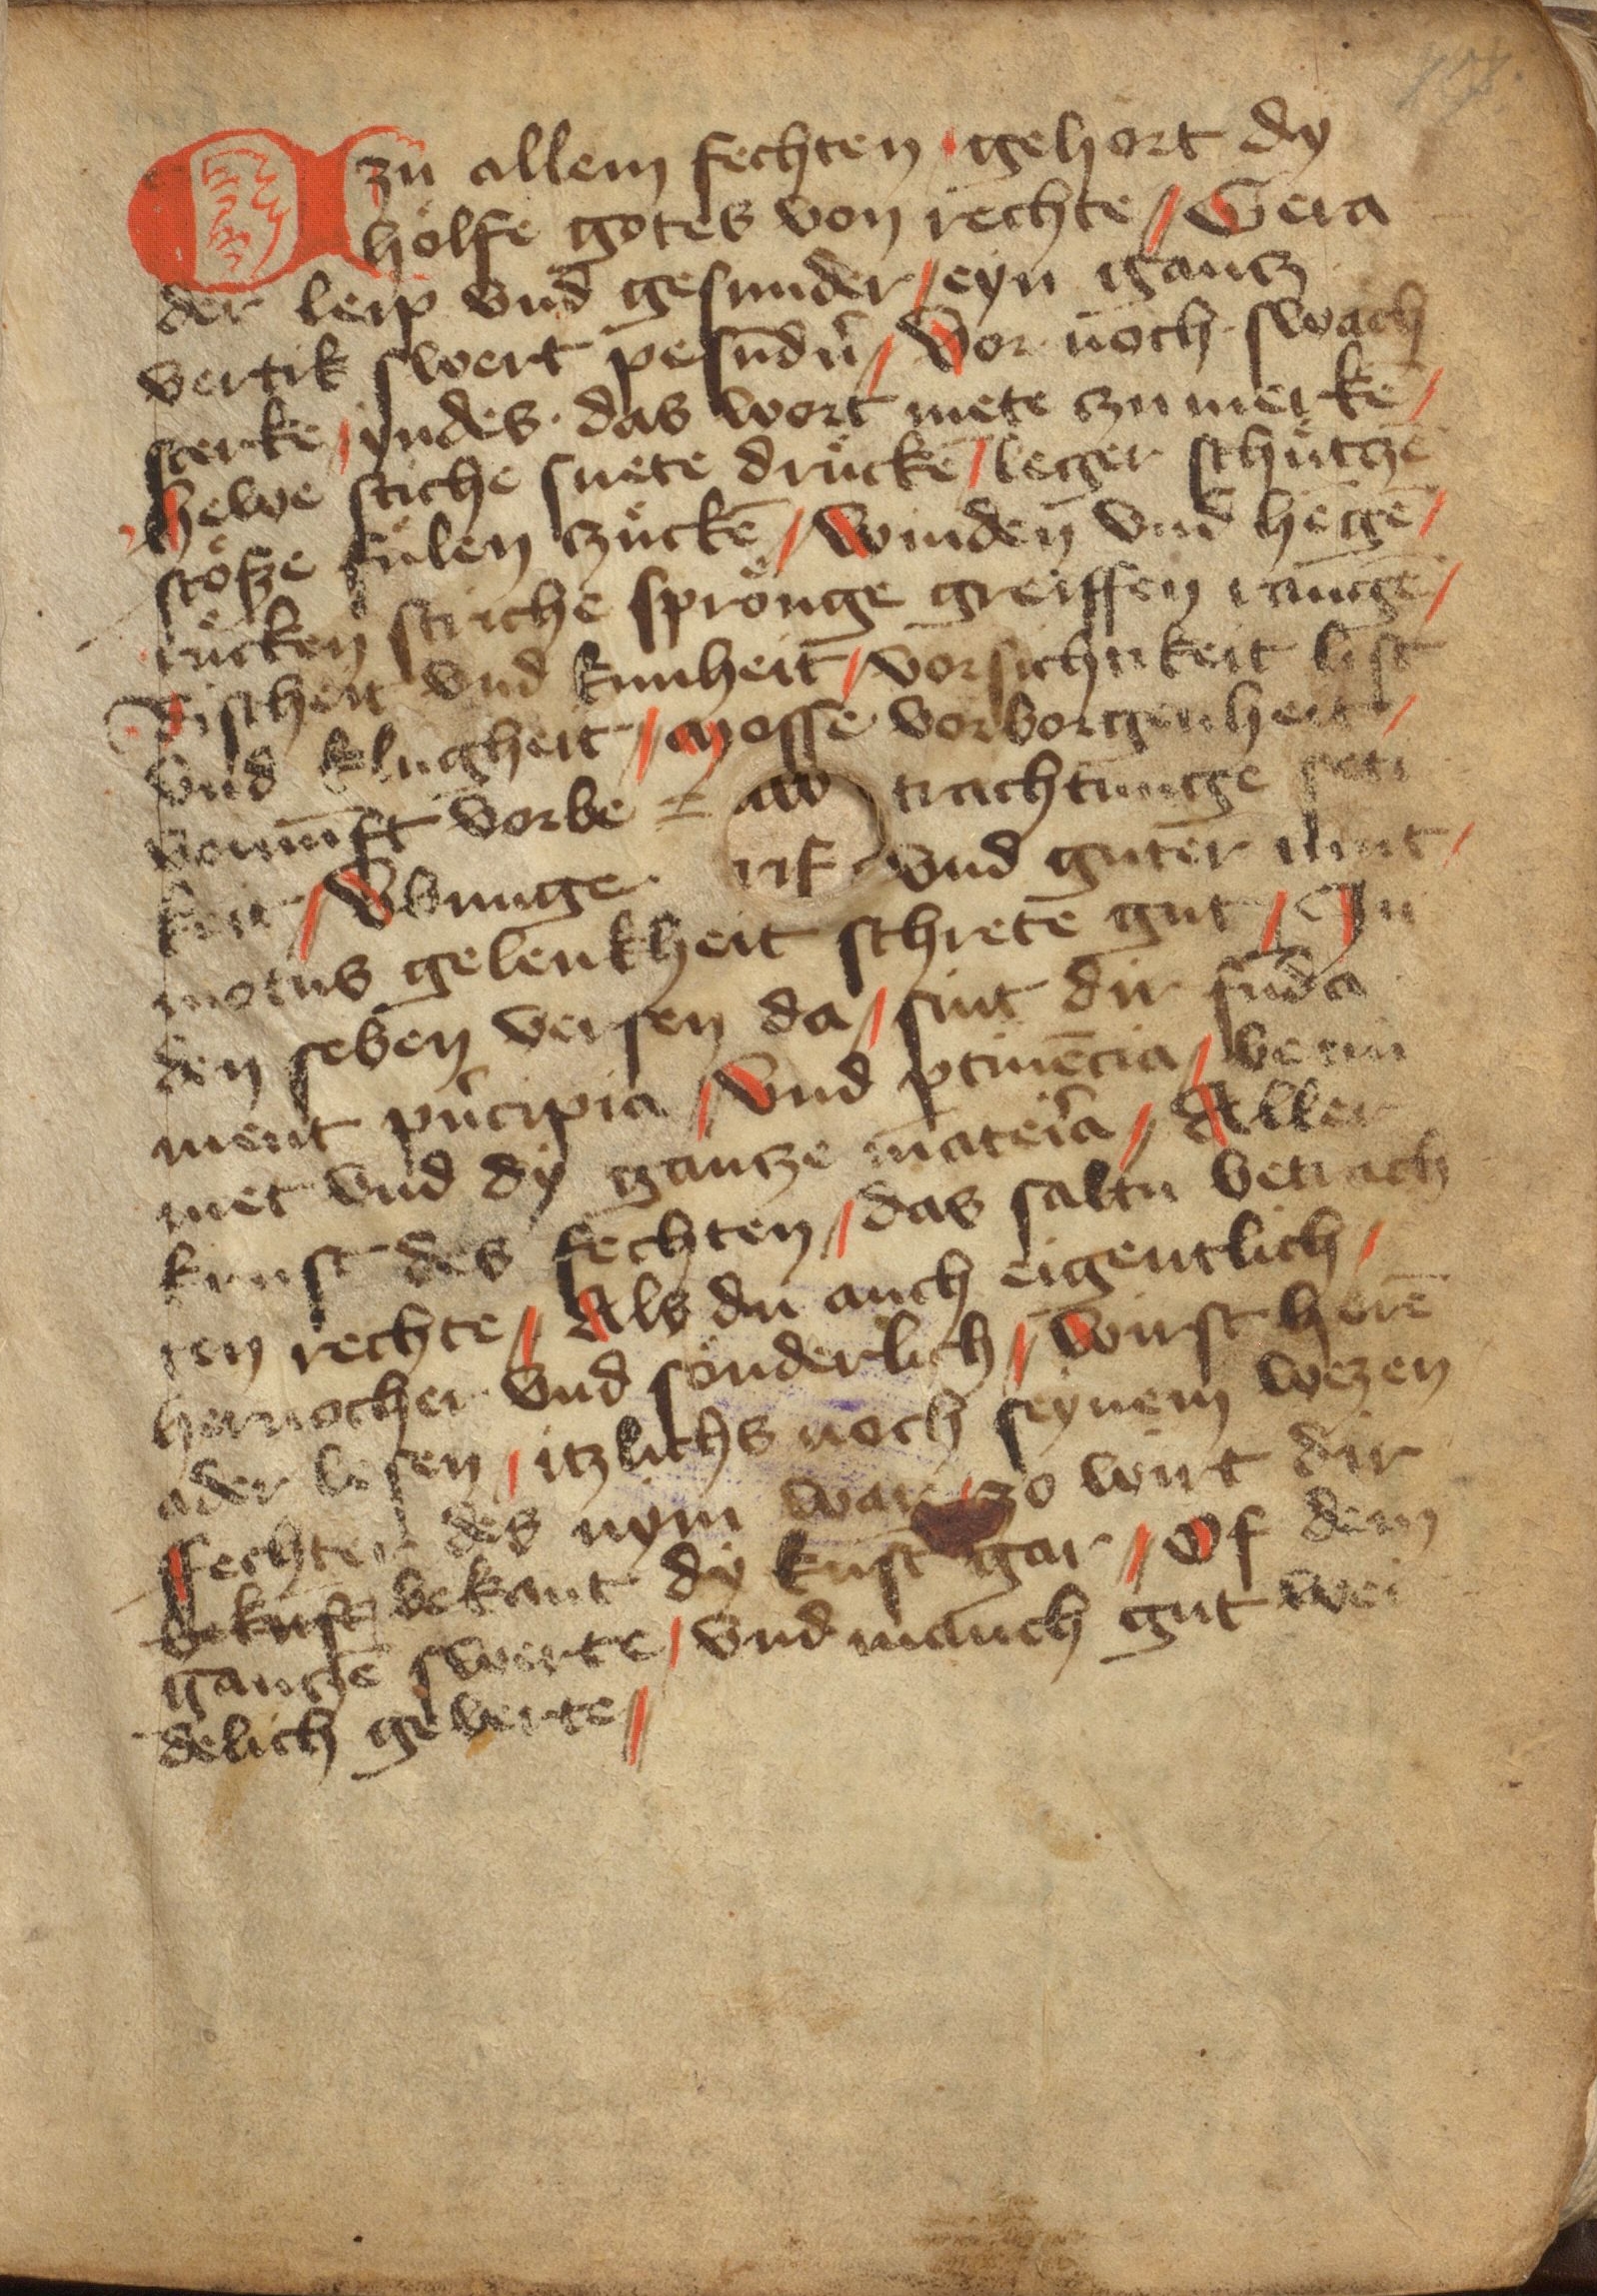 Czu allem fechten gehort dy
hölfe gotes von rechte / Gera
der leip vnd gesunder / eyn gantz
vertik swert pesūdn̄ / Vor noch swach
sterke / yndes das wort mete czu merkē /
hewe stiche snete drückē / leger schützē
stöße fülen czückē / Winden vnd hengē /
rücken striche sprönge greiffen rangē /
Rischeit vnd kunheit / vorsichtikeit list
vnd klugheit / Mosse vorborgenheit /
vernūft vorbe = aw trachtunge feti
keit / Vbunge rif vnd guter mut /
motus gelenkheit schretē gut / In
den seben versen da / sint dir fūda
ment pn̄cipia / Vnd ptinēcia / benū
met vnd dy gantze mater̄a / Aller
kunst des fechten / das saltu betrach
ten rechte / Als du auch eigentlich /
hernocher vnd sönderlich / wirst horē
ader lesen / itzlichs noch seynem wezen
Fechter des nym war / zo wirt dir
bekūst bekant dy kūst gar / Of dem
gantzē swerte / vnd manch gut wei
delich geverte /